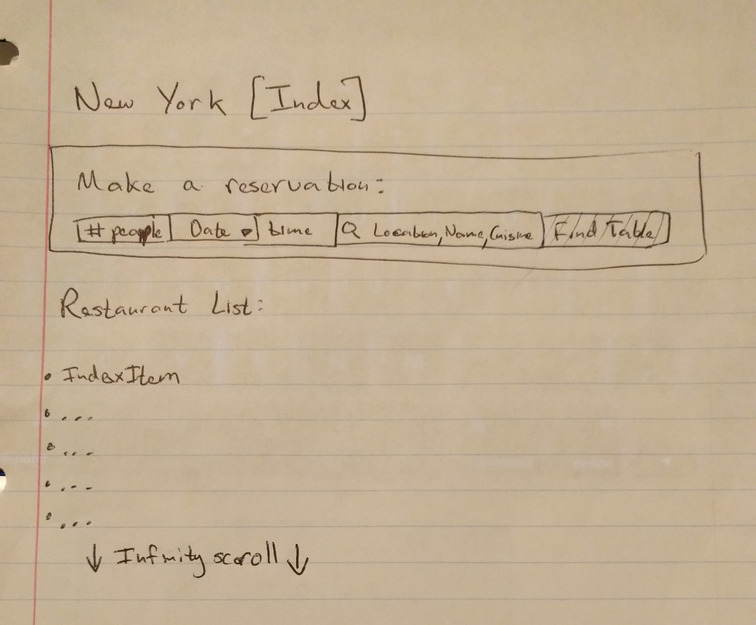 New York [Index]
Make a reservation:
# people Date time Location, Name, Cuisine Find Table
Restaurant List:
• IndexItem
• ...
• ...
• ...
• ...
↓ Infinity scroll ↓